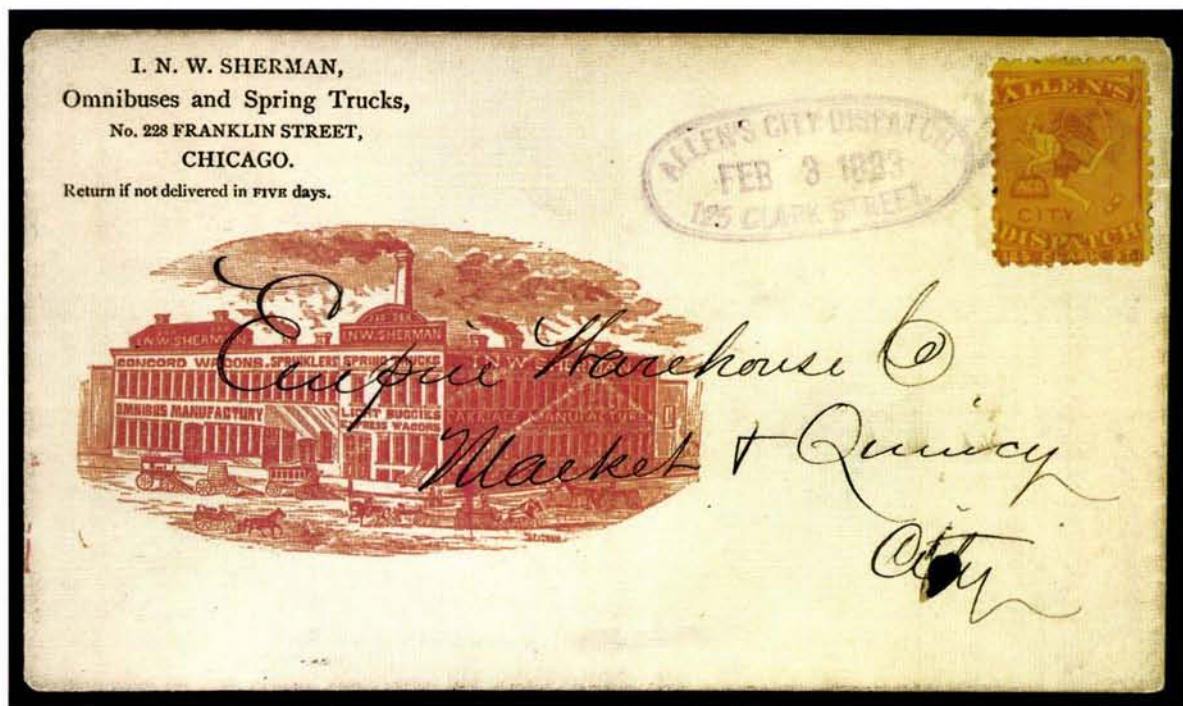 I. N. W. SHERMAN,
Omnibuses and Spring Trucks,
No. 228 FRANKLIN STREET,
CHICAGO.
Return if not delivered in FIVE days.
ALLEN'S CITY DISPATCH
FEB 3 1883
125 CLARK STREET.
ALLEN'S
CITY
DISPATCH
I.N.W. SHERMAN
I.N.W. SHERMAN
I.N.W. SHERMAN
CONCORD WAGONS, SPRINKLERS SPRING TRUCKS
OMNIBUS MANUFACTORY
LIGHT BUGGIES
EXPRESS WAGONS
CARRIAGE MANUFACTORY
Empire Warehouse Co
Market & Quincy
City